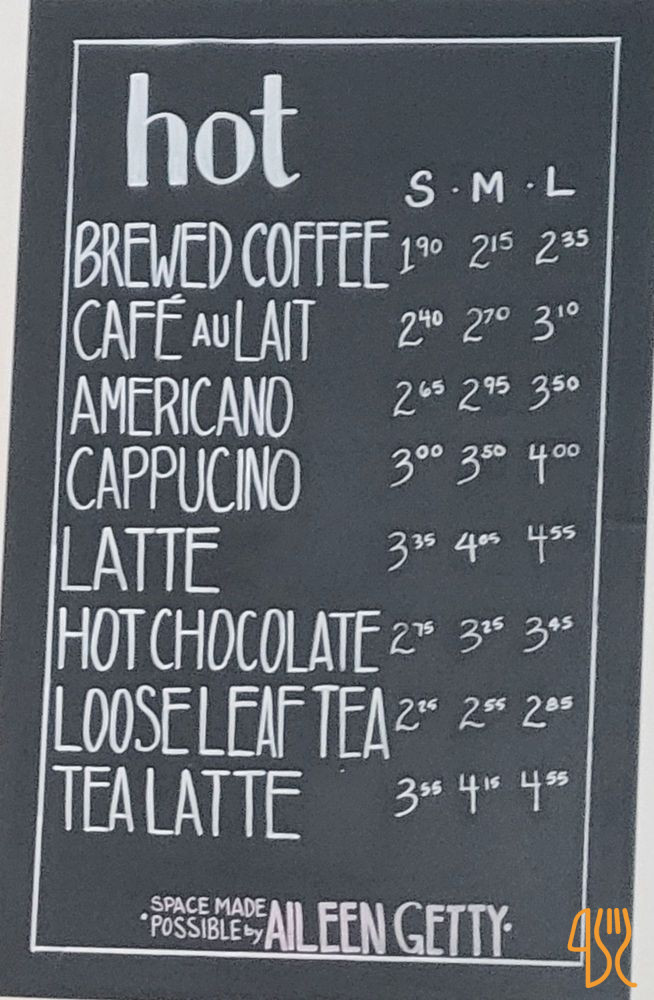 hot
S · M · L
BREWED COFFEE 1.90 2.15 2.35
CAFÉ AU LAIT 2.40 2.70 3.10
AMERICANO 2.65 2.95 3.50
CAPPUCINO 3.00 3.50 4.00
LATTE 3.35 4.05 4.55
HOT CHOCOLATE 2.75 3.25 3.45
LOOSE LEAF TEA 2.25 2.55 2.85
TEA LATTE 3.55 4.15 4.55
·SPACE MADE POSSIBLE by AILEEN GETTY·